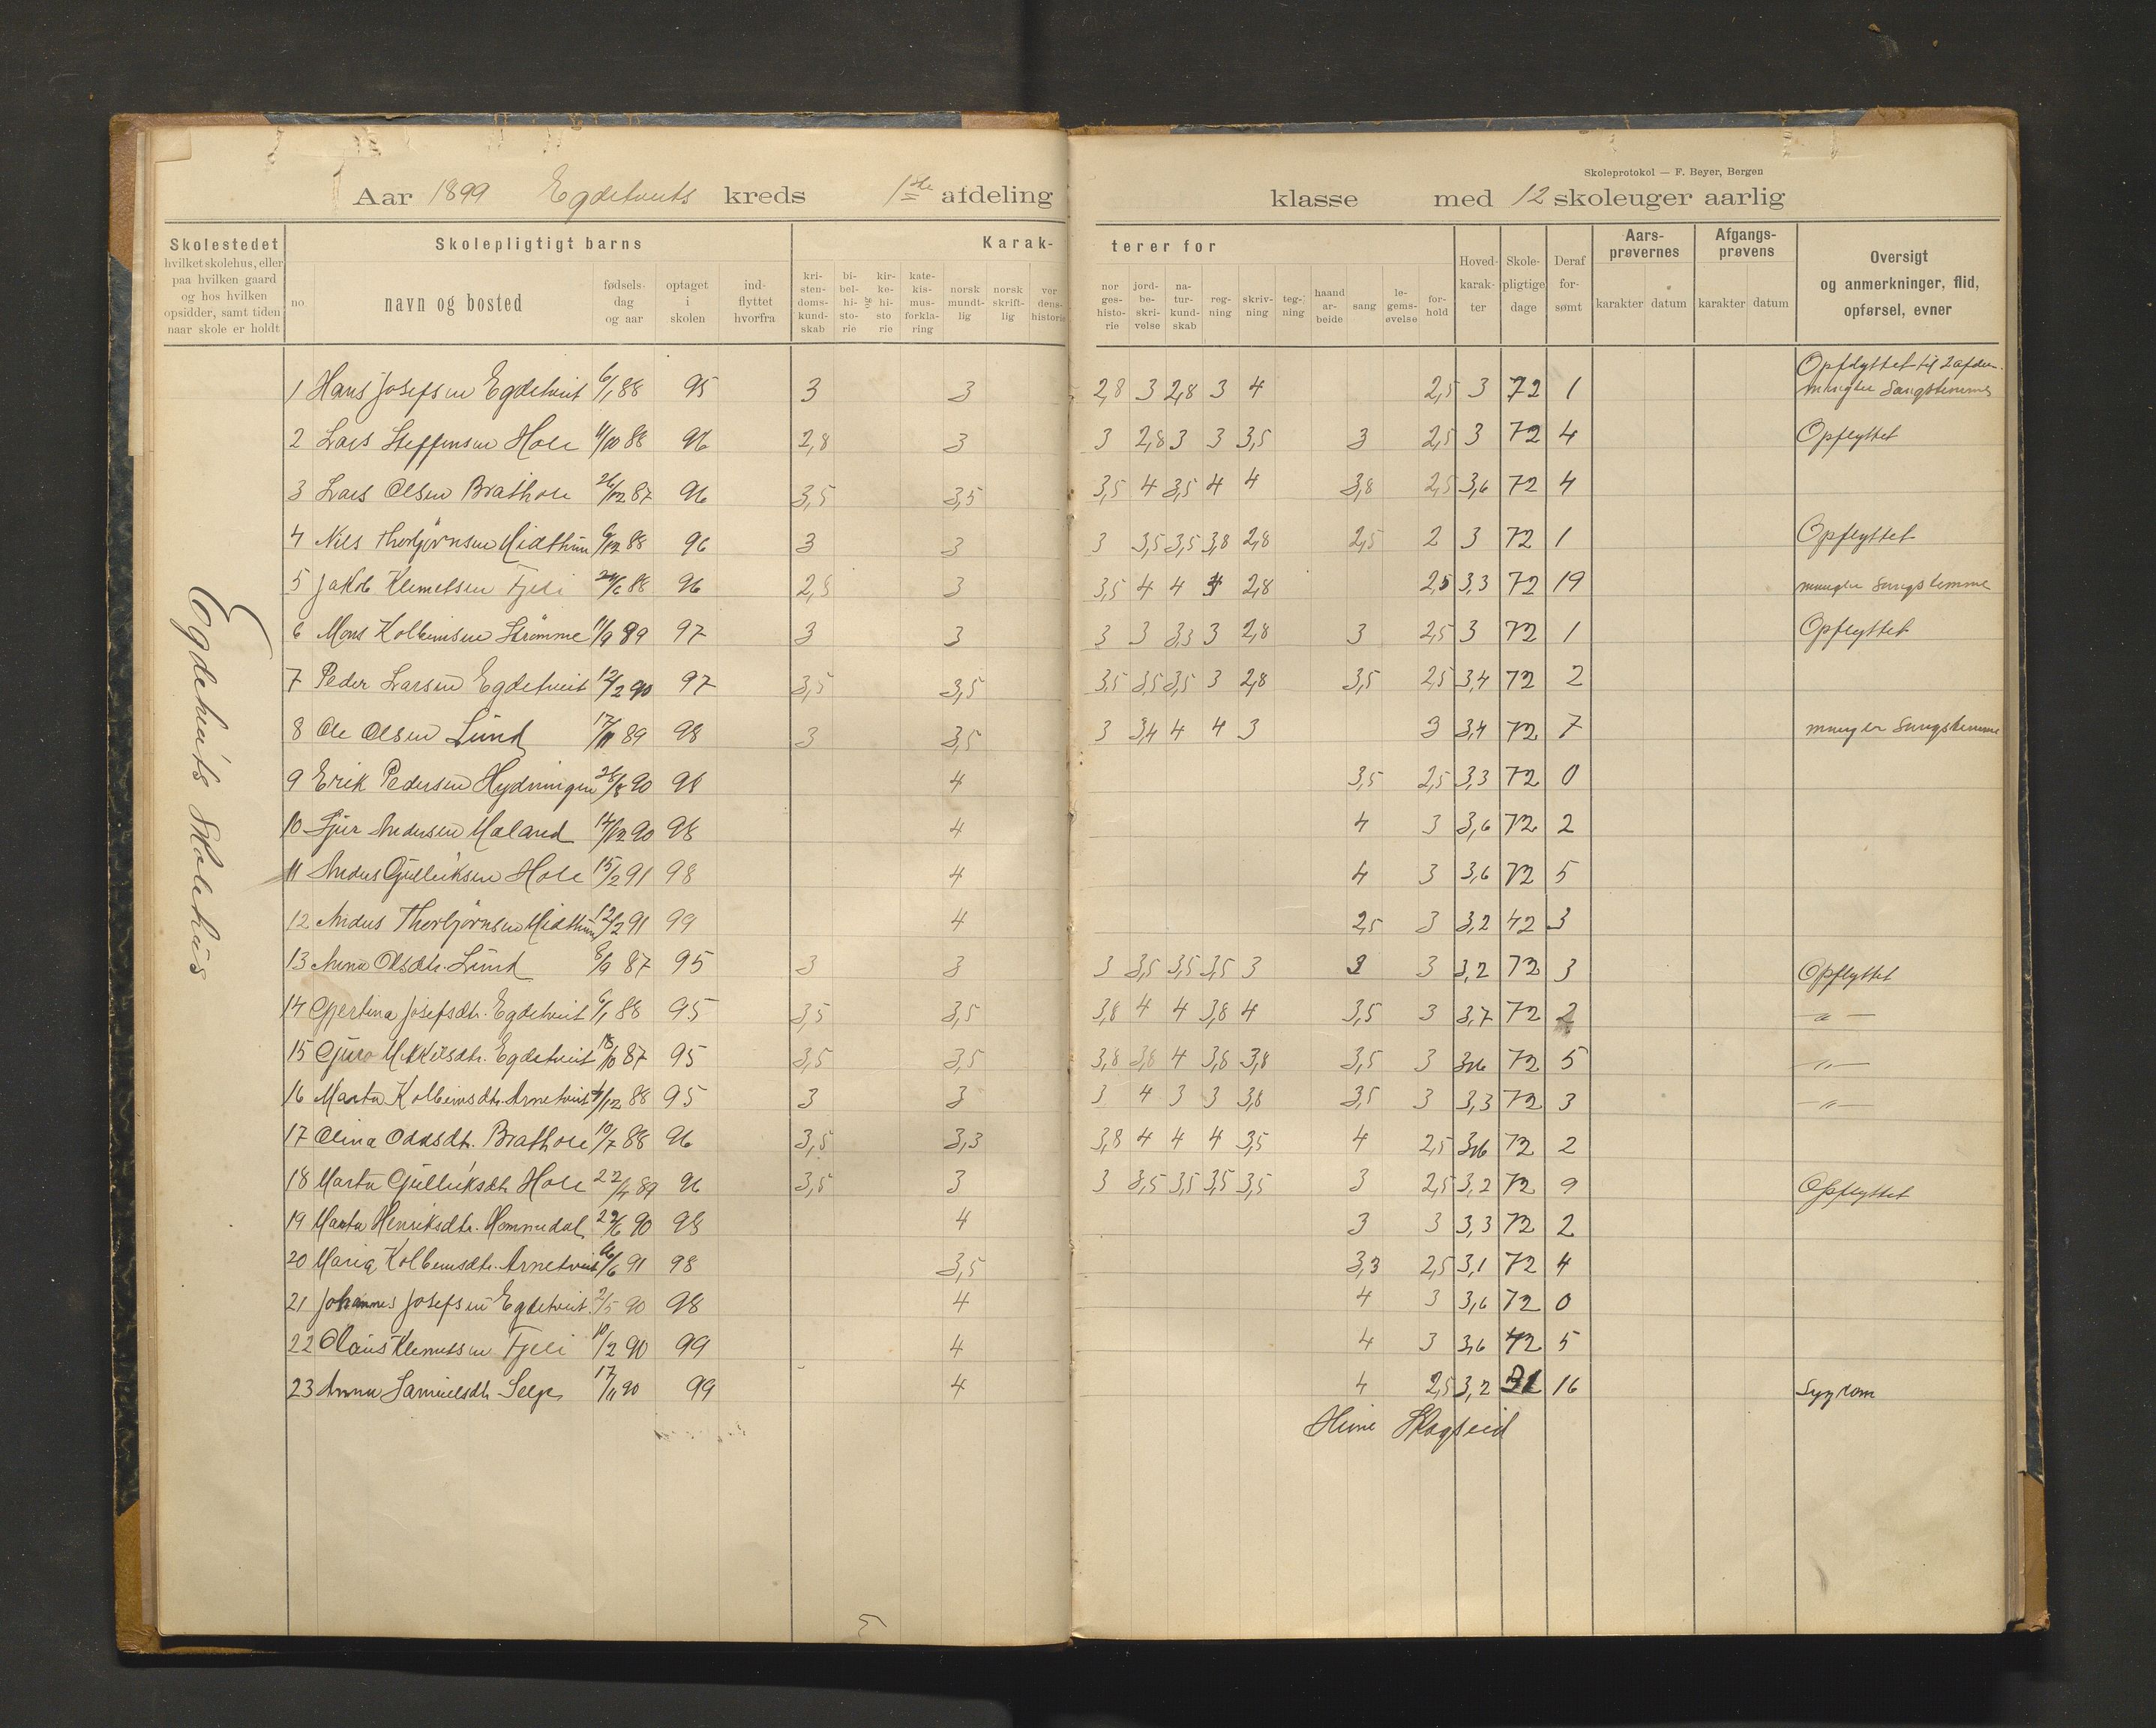 Skoleprotokol — F. Beyer, Bergen
Aar 1899 Egdetveits kreds 1ste afdeling klasse med 12 skoleuger aarlig
Skolestedet hvilket skolehus, eller paa hvilken gaard og hos hvilken opsidder, samt tiden naar skole er holdt
Skolepligtigt barns
no. navn og bosted fødsels- dag og aar optaget i skolen ind- flyttet hvorfra
Karak- terer for
kri- sten- doms- kund- skab bi- bel- hi- sto- rie og kir- ke- hi- sto rie kate- kis- mus- forkla- ring norsk mundt- lig norsk skrift- lig ver dens- historie
nor ges- histo- rie jord- be- skri- velse na- tur- kund- skab reg- ning skriv- ning teg- ning haand ar- beide sang le- gems- øvelse for- hold
Hoved- karak- ter Skole- pligtige dage Deraf for- sømt
Aars- prøvernes karakter datum Afgangs- prøvens karakter datum
Oversigt og anmerkninger, flid, opførsel, evner
Egdetveits Skolehus
1 Hans Josefsen Egdetveit 6/1 88 95 3 3 2,8 3 2,8 3 4 2,5 3 72 1 Opflyttet til 2 afdeln. mangler Sangstemme
2 Lars Steffensen Hole 11/10 88 96 2,8 3 3 2,8 3 3 3,5 3 2,5 3 72 4 Opflyttet
3 Lars Olsen Brathole 26/12 87 96 3,5 3,5 3,5 4 3,5 4 4 3,8 2,5 3,6 72 4
4 Nils Thorbjørnsen Midthun 6/12 88 96 3 3 3 3,5 3,5 3,8 2,8 2,5 2 3 72 1 Opflyttet
5 Jakob Klemetsen Fjeli 24/6 88 96 2,8 3 3,5 4 4 4 2,8 2,5 3,3 72 19 mangler Sangstemme
6 Mons Kolbeinsen Strømme 11/9 89 97 3 3 3 3 3,3 3 2,8 3 2,5 3 72 1 Opflyttet
7 Peder Larsen Egdetveit 12/2 90 97 3,5 3,5 3,5 3,5 3,5 3 2,8 3,5 2,5 3,4 72 2
8 Ole Olsen Lund 17/11 89 98 3 3,5 3 3,4 4 4 3 3 3,4 72 7 mangler Sangstemme
9 Erik Pedersen Hydningen 26/8 90 98 4 3,5 2,5 3,3 72 0
10 Sjur Andersen Maland 14/12 90 98 4 4 3 3,6 72 2
11 Anders Gulleiksen Hole 15/2 91 98 4 4 3 3,6 72 5
12 Anders Thorbjørnsen Midthun 12/2 91 99 4 2,5 3 3,2 42 3
13 Anna Olsdtr. Lund 8/9 87 95 3 3 3 3,5 3,5 3,5 3 3 3 3,2 72 3 Opflyttet
14 Gjertina Josefsdtr. Egdetveit 6/1 88 95 3,5 3,5 3,8 4 4 3,8 4 3,5 3 3,7 72 2 — " —
15 Guro Mikkelsdtr. Egdetveit 18/10 87 95 3,5 3,5 3,8 3,8 4 3,8 3,8 3,5 3 3,6 72 5 — " —
16 Marta Kolbeinsdtr. Arnetveit 4/12 88 95 3 3 3 4 3 3 3,8 3,5 3 3,3 72 3 — " —
17 Olina Oddsdtr. Brathole 10/7 88 96 3,5 3,3 3,8 4 4 4 3,5 4 2,5 3,6 72 2
18 Marta Gulleiksdtr. Hole 22/4 89 96 3,5 3 3 3,5 3,5 3,5 3,5 3 2,5 3,2 72 9 Opflyttet
19 Marta Henriksdtr. Hommedal 29/6 90 98 4 3 3 3,3 72 2
20 Maria Kolbeinsdtr. Arnetveit 16/6 91 98 3,5 3,3 2,5 3,1 72 4
21 Johannes Josefsen Egdetveit 2/5 90 98 4 4 3 3,6 72 0
22 Olaus Klemetsen Fjeli 10/2 90 99 4 4 3 3,6 42 5
23 Anna Samuelsdtr. Selje 17/11 90 99 4 4 2,5 3,2 31 16 Sygdom